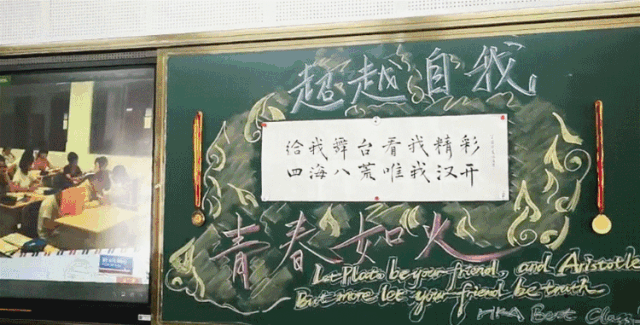 超越自我
给我舞台看我精彩
四海八荒唯我汉开
青春如火
Let Plato be your friend, and Aristotle
But more let your friend be truth
HKA Best Class